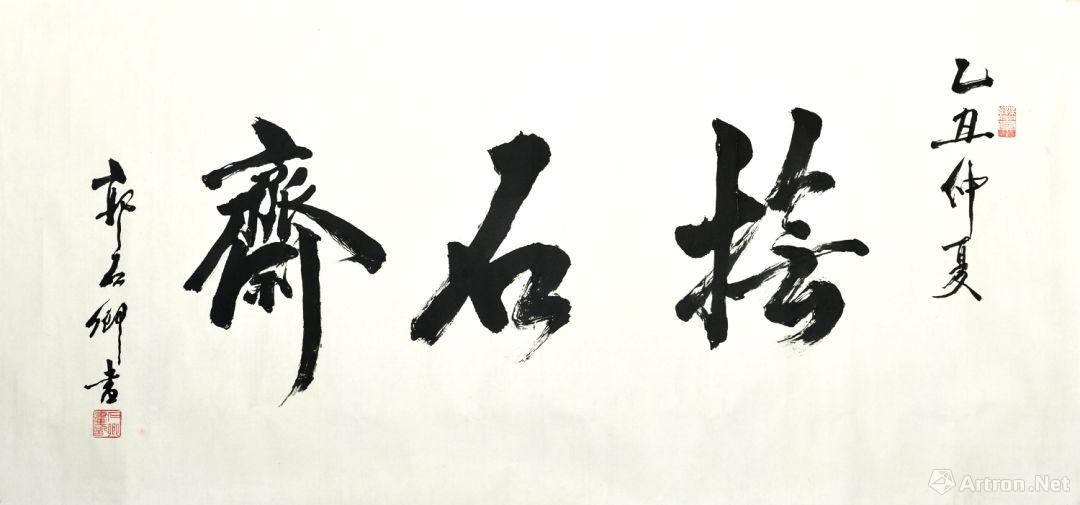 乙丑仲夏
石齋
郭石卿书
Artron.Net